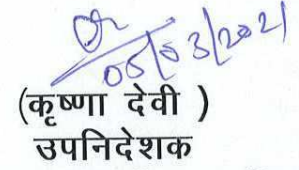 05/03/2021
(कृष्णा देवी )
उपनिदेशक